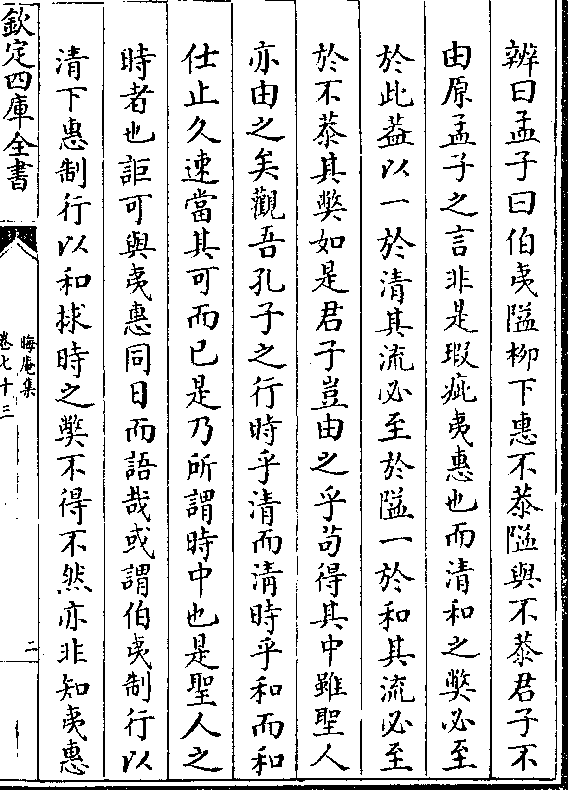 辨曰孟子曰伯夷隘柳下惠不恭隘與不恭君子不
由原孟子之言非是瑕疵夷惠也而清和之弊必至
於此葢以一於清其流必至於隘一於和其流必至
於不恭其弊如是君子豈由之乎茍得其中雖聖人
亦由之矣觀吾孔子之行時乎清而清時乎和而和
仕止久速當其可而已是乃所謂時中也是聖人之
時者也詎可與夷惠同日而語哉或謂伯夷制行以
清下惠制行以和捄時之弊不得不然亦非知夷惠
欽定四庫全書
晦庵集
卷七十三
二